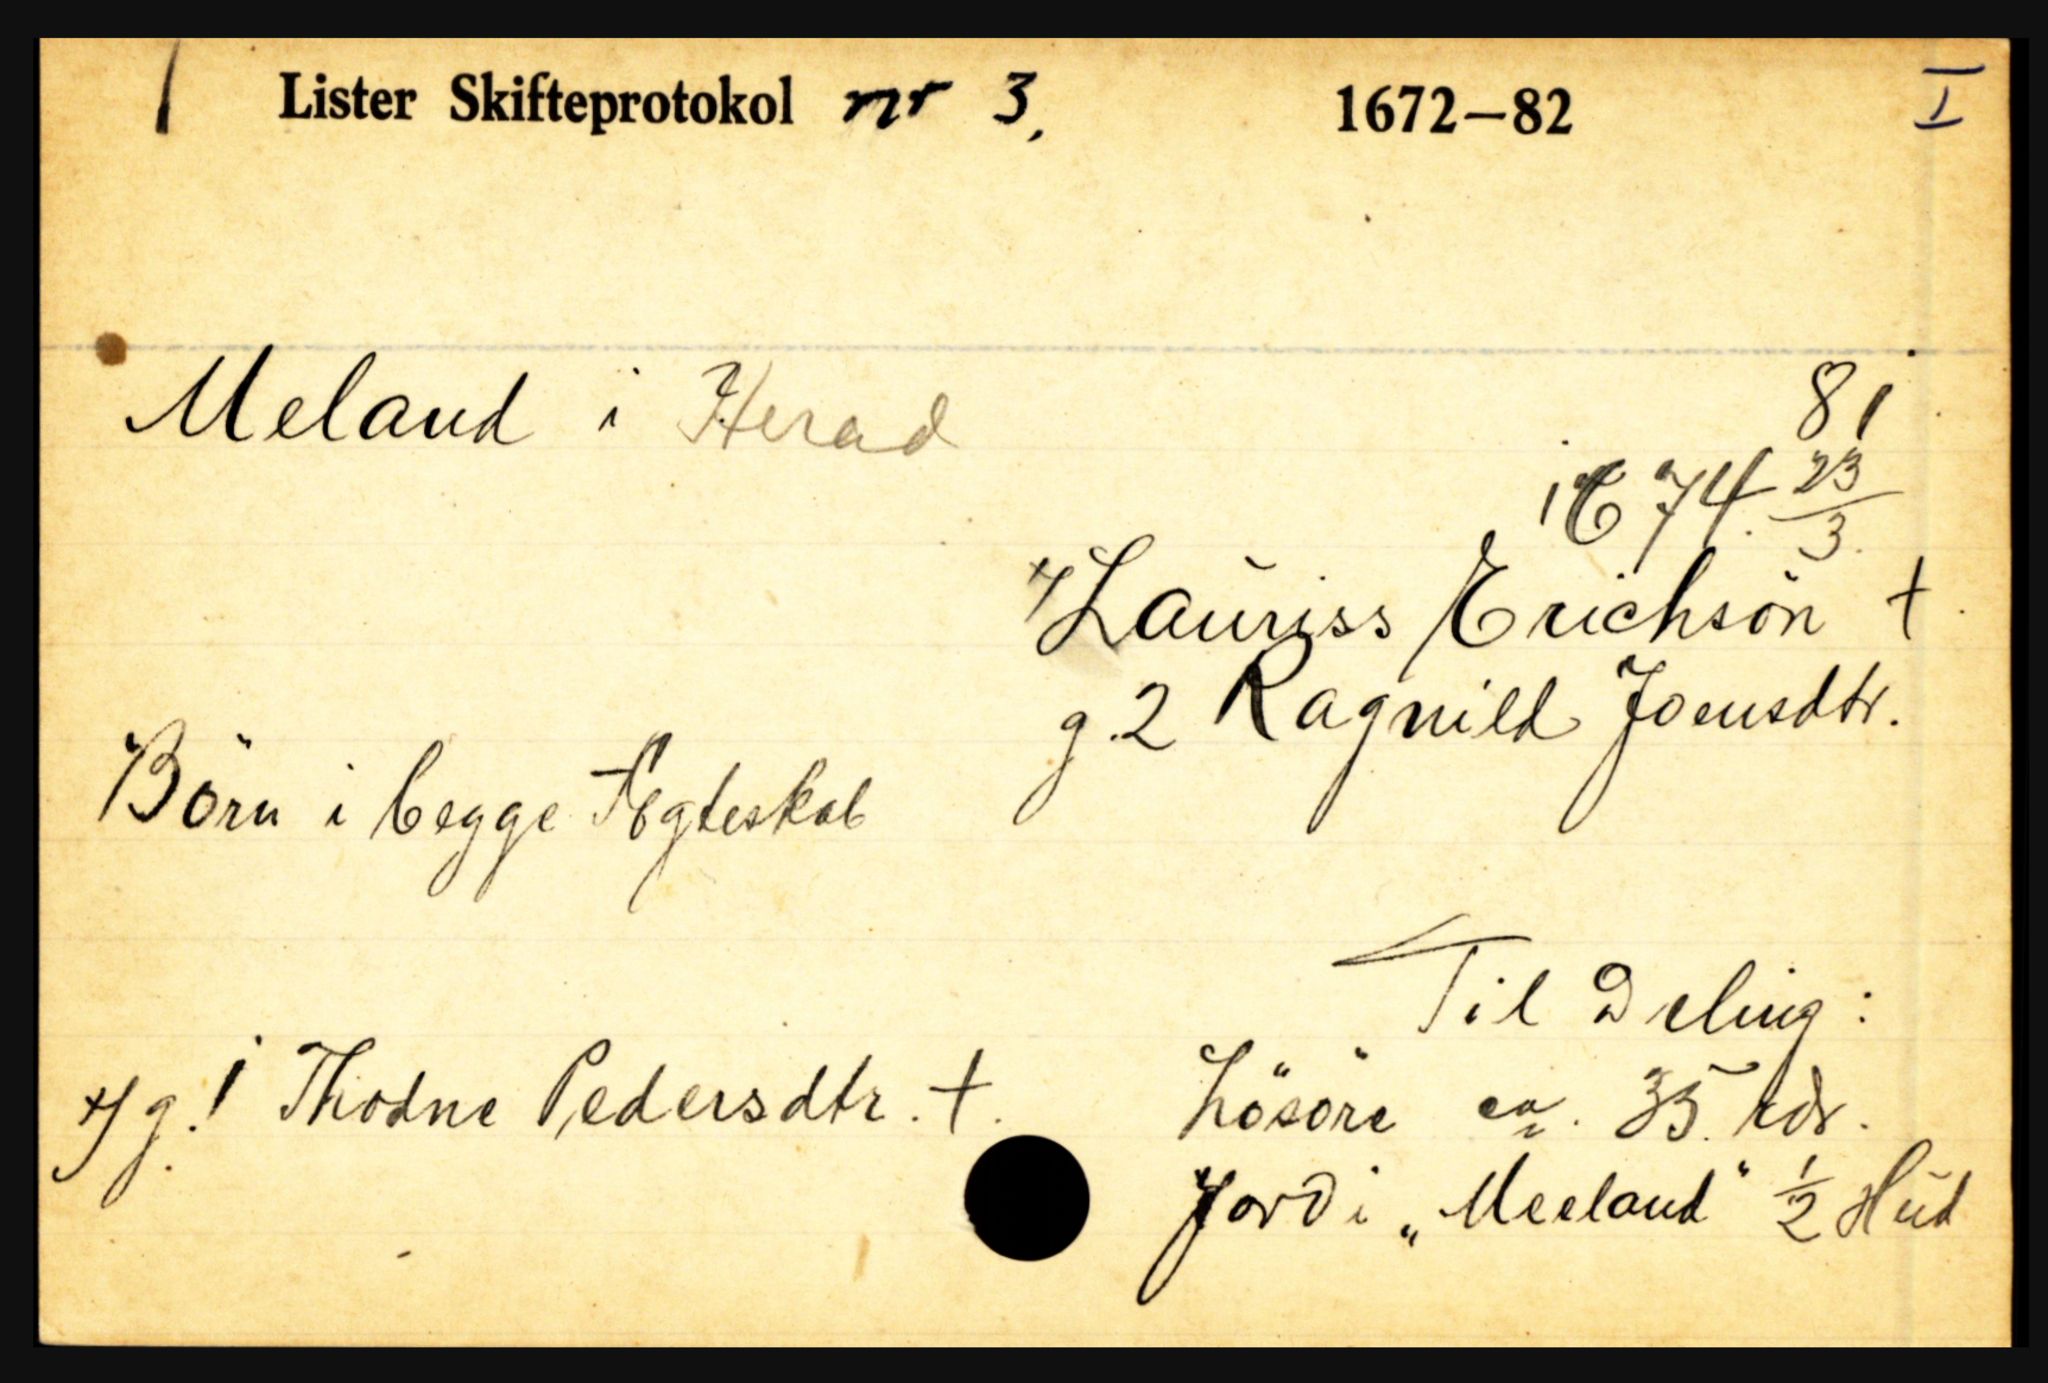 Lister Skifteprotokol nr 3, 1672–82 I
Meland i Herad
81
1674 23/3.
Lauriss Erichsön †
g.2 Ragnild Joensdtr.
Börn i begge Ægteskab
Til Deling:
g.1 Thodne Pedersdtr. †.
Lösöre ca. 35 rdr.
Jord i „Meeland" 1/2 Hud